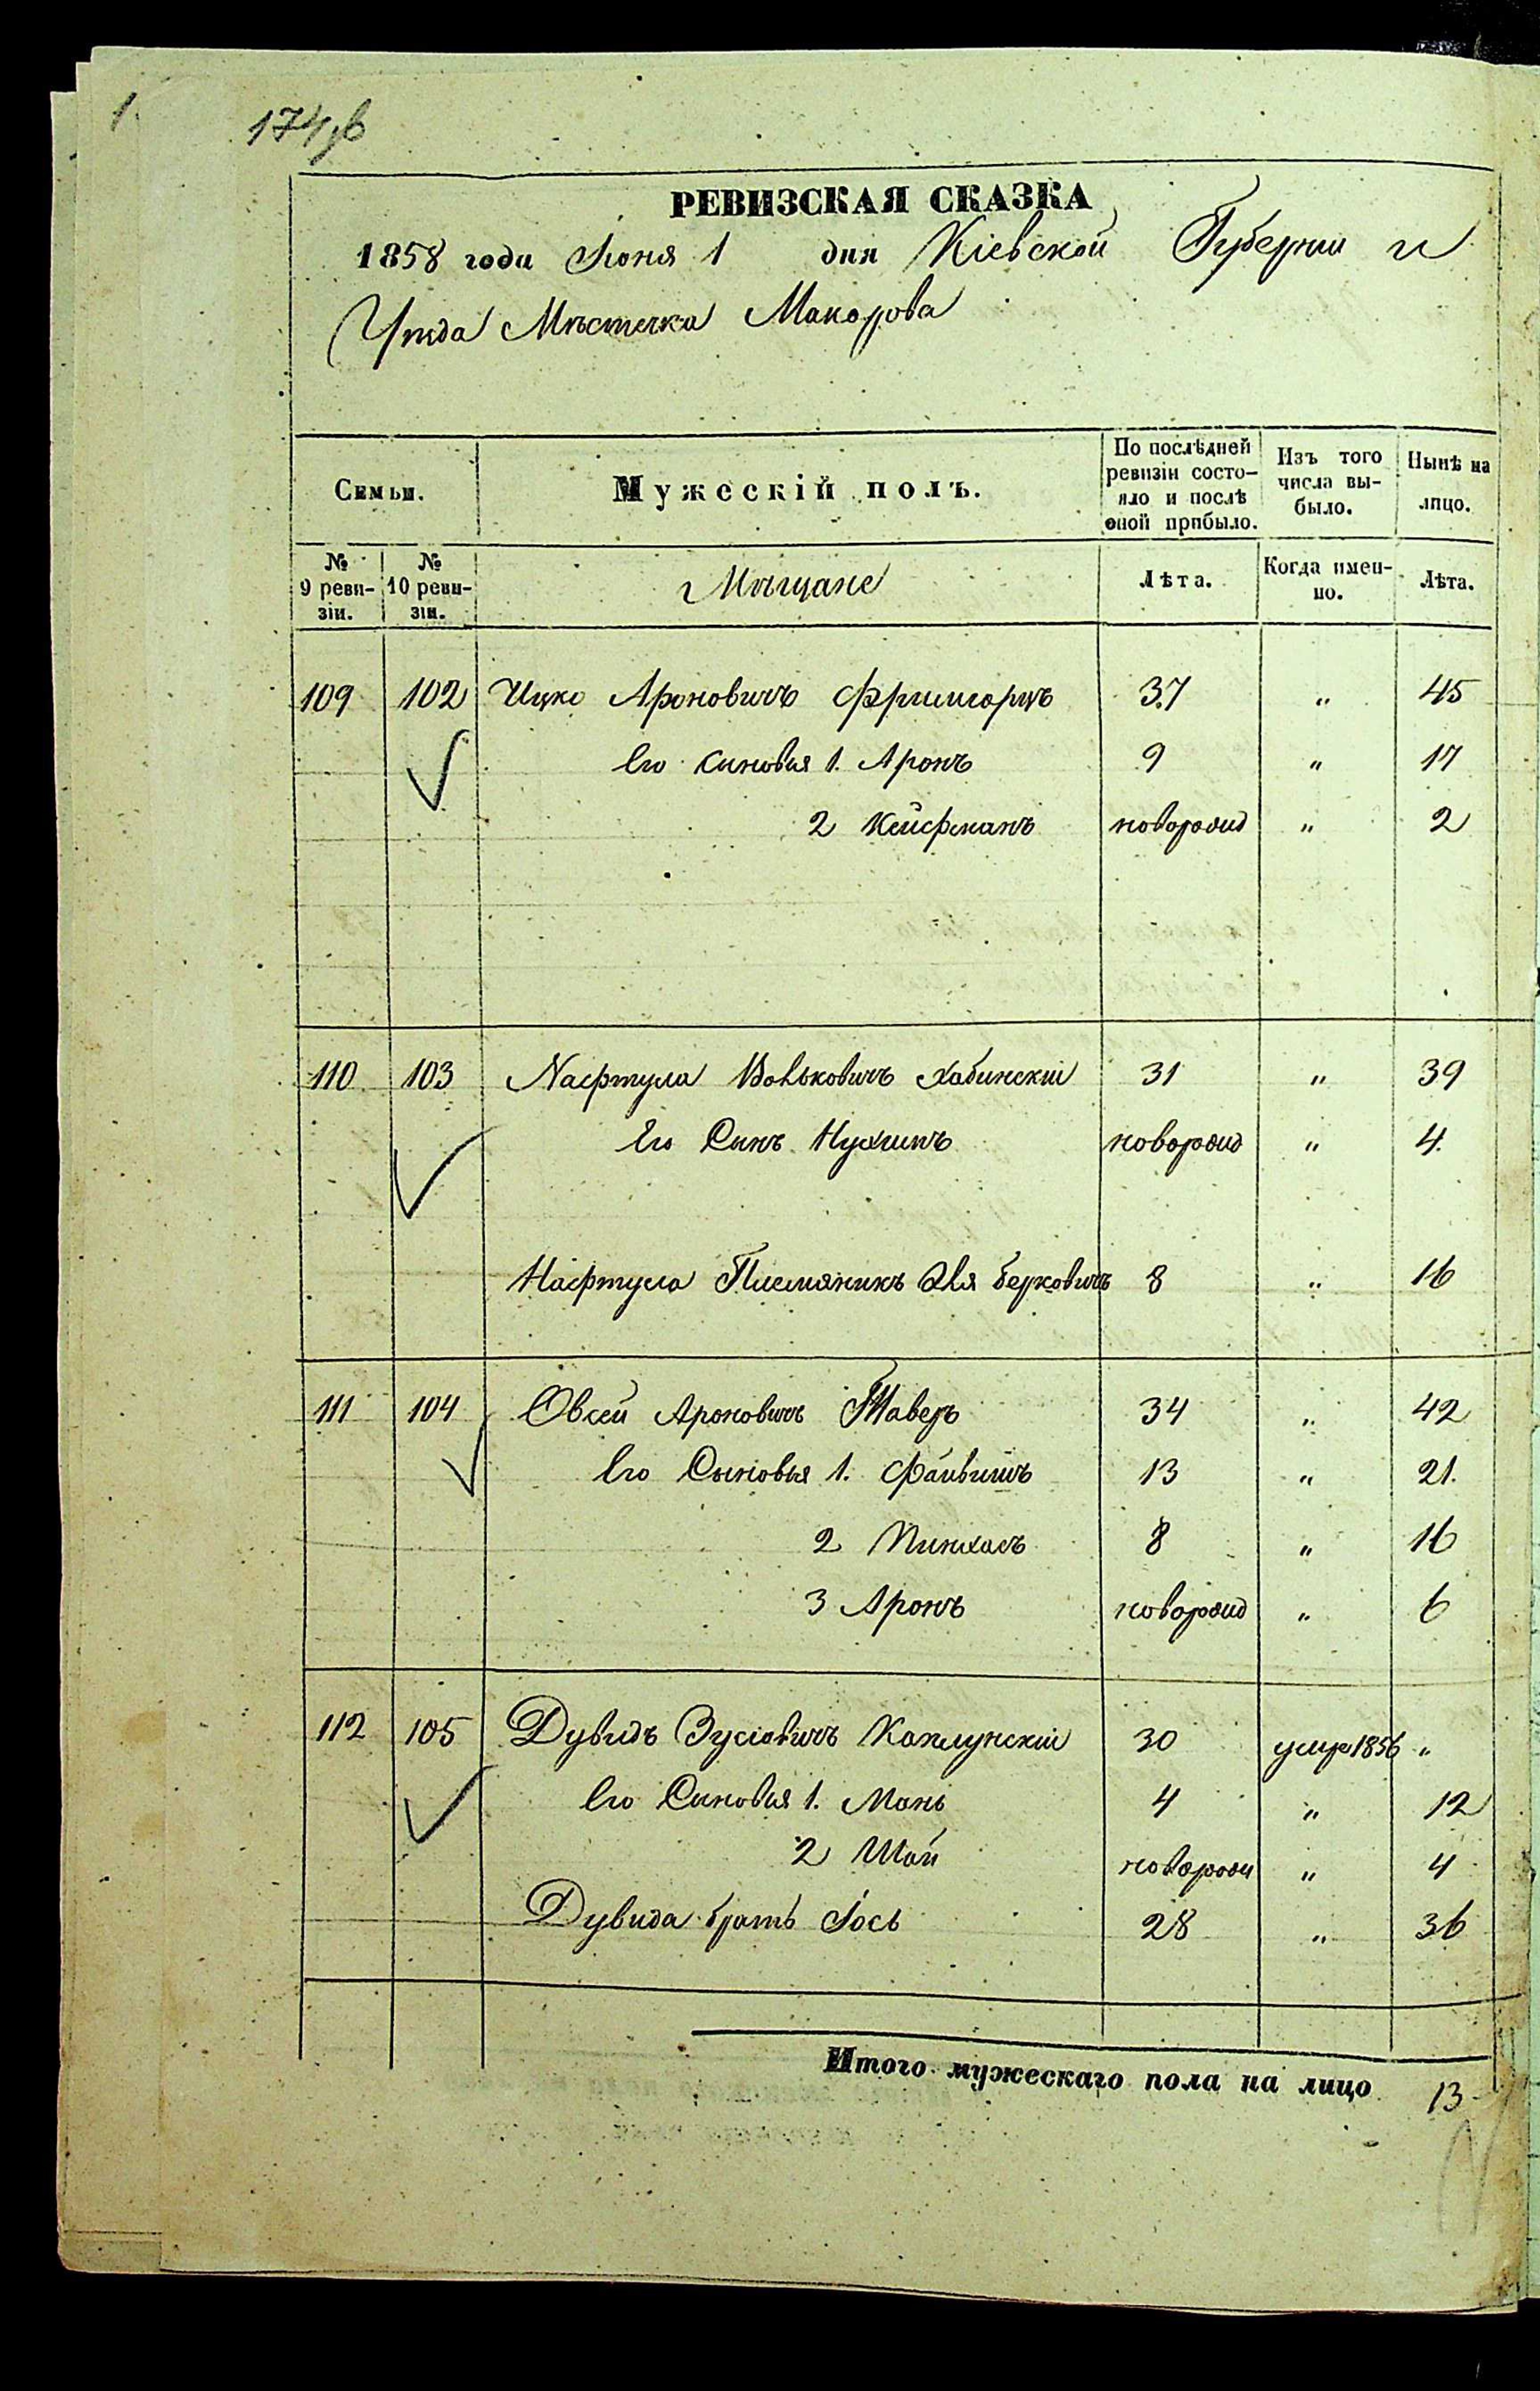 1.
174
РЕВИЗСКАЯ СКАЗКА
1858 года Іюня 1 дня Кіевской Губерніи и
Уѣзда Мѣстечка Макарова
Семьи. Мужескій полъ. По послѣдней ревизіи состояло и послѣ оной прибыло. Изъ того числа выбыло. Нынѣ на лицо.
№ 9 ревизіи. № 10 ревизіи. Мѣщане Лѣта. Когда именно. Лѣта.
109 102 Ицко Ароновичъ 37 " 45
Его Синовья 1. Аронъ 9 " 17
2 Кейфманъ новорожд " 2
110 103 Нафтула Вольковичъ Хабинскій 31 " 39
Его Сынъ Нухимъ новорожд " 4
Нафтула Племяникъ Эля Берковичъ 8 " 16
111 104 Овсей Ароновичъ Таверъ 34 " 42
Его Сыновья 1. Файвишъ 13 " 21
2 Пинхасъ 8 " 16
3 Аронъ новорожд " 6
112 105 Дувидъ Зусіовичъ Каплунскій 30 умре 1856 "
Его Синовья 1. Мань 4 " 12
2 Шаи новорож " 4
Дувида братъ Іось 28 " 36
Итого мужескаго пола на лицо 13